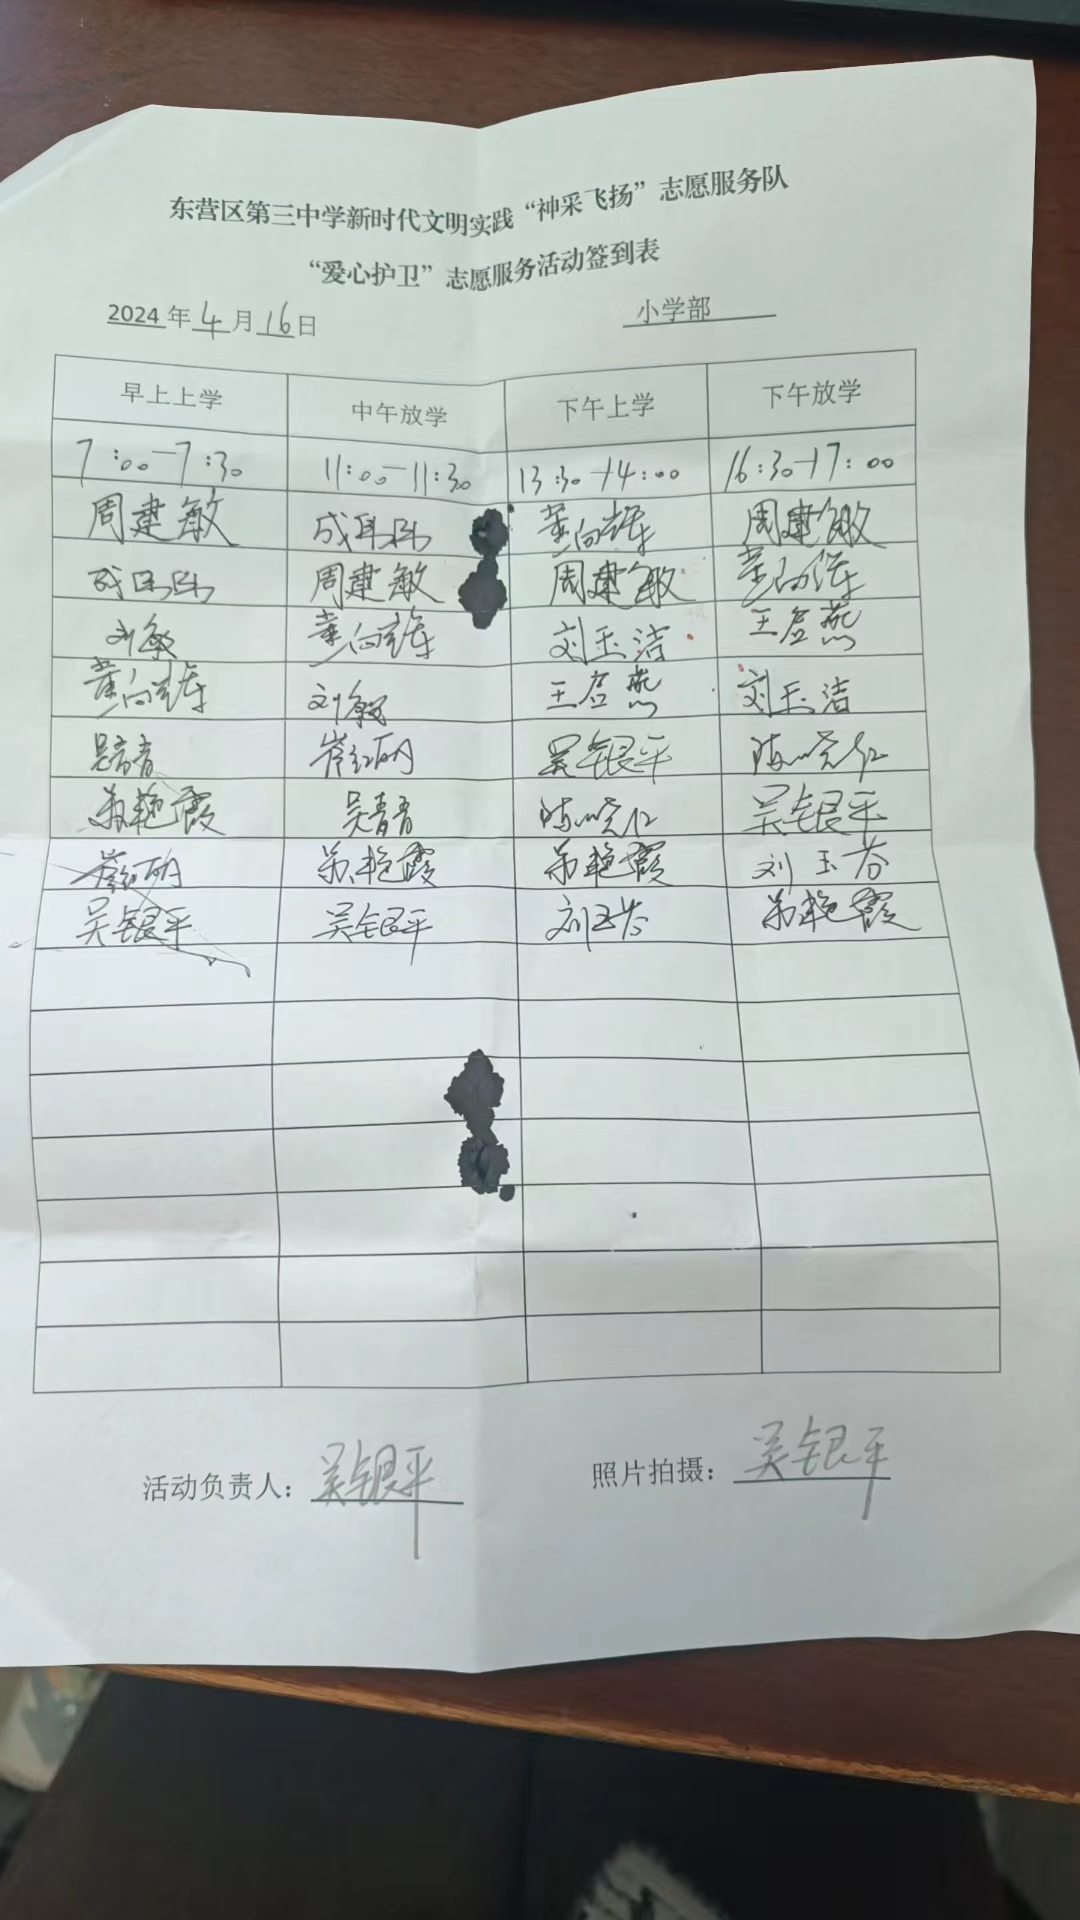 东营区第三中学新时代文明实践“神采飞扬”志愿服务队
“爱心护卫”志愿服务活动签到表
2024年4月16日 小学部
早上上学 中午放学 下午上学 下午放学
7:00-7:30 11:00-11:30 13:30-14:00 16:30-17:00
周建敏 董向 周建敏
周建敏 周建敏 董向
刘敏 董向 刘玉洁 王彦燕
董向 刘敏 王彦燕 刘玉洁
吴青青 崔红明 吴银平 陈晓红
艳霞 吴青青 陈晓红 吴银平
崔红明 艳霞 艳霞 刘玉芬
吴银平 吴银平 刘玉芬 艳霞
活动负责人：吴银平 照片拍摄：吴银平